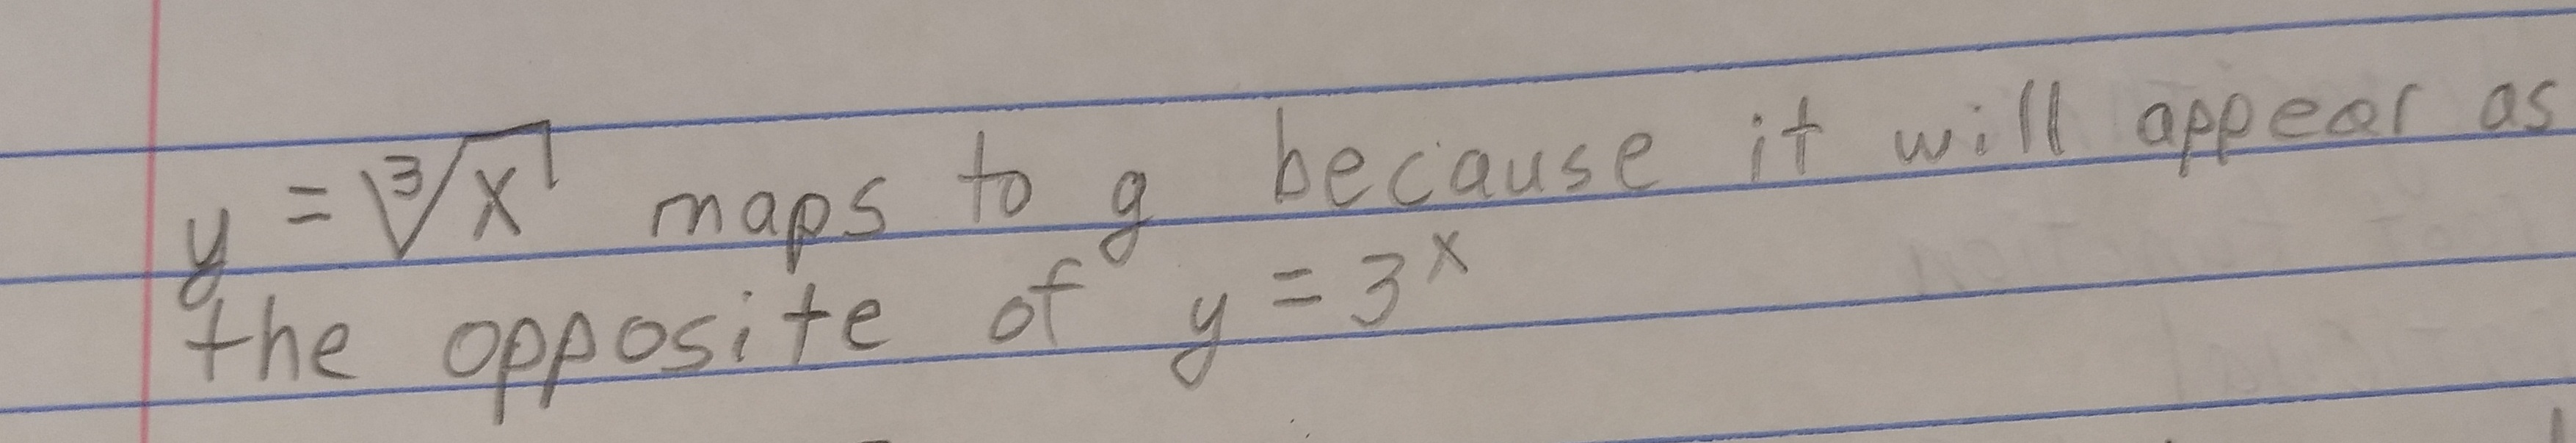 y = ∛x maps to g because it will appear as
the opposite of y = 3^x